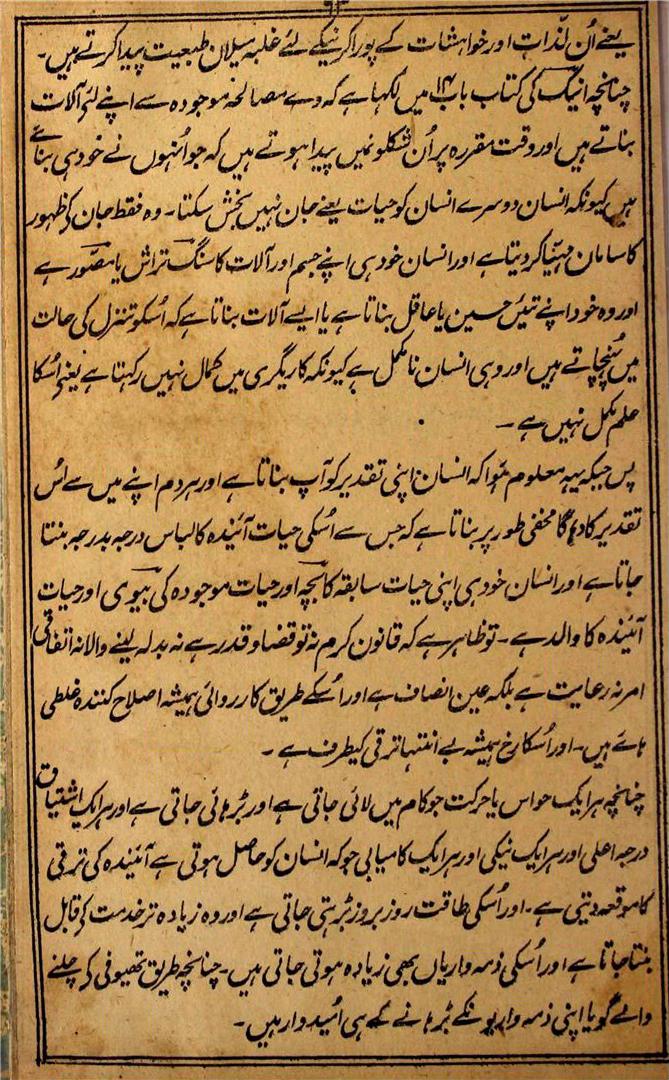 ۶۳
یعنے اُن لذّات اور خواہشات کے پورا کرنیکے لئے غلبہ میلان طبیعت پیدا کرتے ہیں۔
چنانچہ انیگ کی کتاب باب ۱۴ میں لکہا ہے کہ وے مصالحہ موجودہ سے اپنے لئے آلات
بناتے ہیں اور وقت مقررہ پر اُن شکلونمیں پیدا ہوتے ہیں کہ جو اُنہوں نے خود ہی بنائے
ہیں کیونکہ انسان دوسرے انسان کو حیات یعنے جان نہیں بخش سکتا۔ وہ فقط جان کے ظہور
کا سامان مہیّا کر دیتا ہے اور انسان خود ہی اپنے جسم اور آلات کا سنگ تراش یا مصّور ہے
اور وہ خود اپنے تیئں حسین یا عاقل بناتا ہے یا ایسے آلات بناتا ہے کہ اُسکو تنزل کی حالت
میں پُنہچاتے ہیں اور وہی انسان نا مکمل ہے کیونکہ کاریگری میں کمال نہیں رکہتا ہے یعنے اُسکا
علم مکمل نہیں ہے۔
پس جبکہ یہہ معلوم ہوا کہ انسان اپنی تقدیر کو آپ بناتا ہے اور ہر دم اپنے میں سے اُس
تقدیر کا دہاگا مخفی طور پر بناتا ہے کہ جس سے اُسکی حیات آئیندہ کا لباس درجہ بدرجہ بنتا
جاتا ہے اور انسان خود ہی اپنی حیات سابقہ کا بچہ اور حیات موجودہ کی بیوی اور حیات
آئیندہ کا والد ہے۔ تو ظاہر ہے کہ قانون کرم نہ تو قضا و قدر ہے نہ بدلہ لینے والا نہ اتفاقی
امر نہ رعایت ہے بلکہ عین انصاف ہے اور اُسکے طریق کارروائی ہمیشہ اصلاح کنندہ غلطی
ہائے ہیں۔ اور اُسکا رخ ہمیشہ بے انتہا ترقی کیطرف ہے۔
چنانچہ ہر ایک حواس یا حرکت جو کام میں لائی جاتی ہے اور بڑہائی جاتی ہے اور ہر ایک اشتیاق
درجہ اعلی اور ہر ایک نیکی اور ہر ایک کامیابی جو کہ انسان کو حاصل ہوتی ہے آئیندہ کی ترقی
کا موقعہ دیتی ہے۔ اور اُسکی طاقت روز بروز بڑہتی جاتی ہے اور وہ زیادہ تر خدمت کے قابل
بنتا جاتا ہے اور اُسکی ذمہ واریاں بھی زیادہ ہوتی جاتی ہیں۔ چنانچہ طریق تھیوفی کے چلنے
والے گویا اپنی ذمہ واریونکے بڑہانے کے ہی اُمیدوار ہیں۔